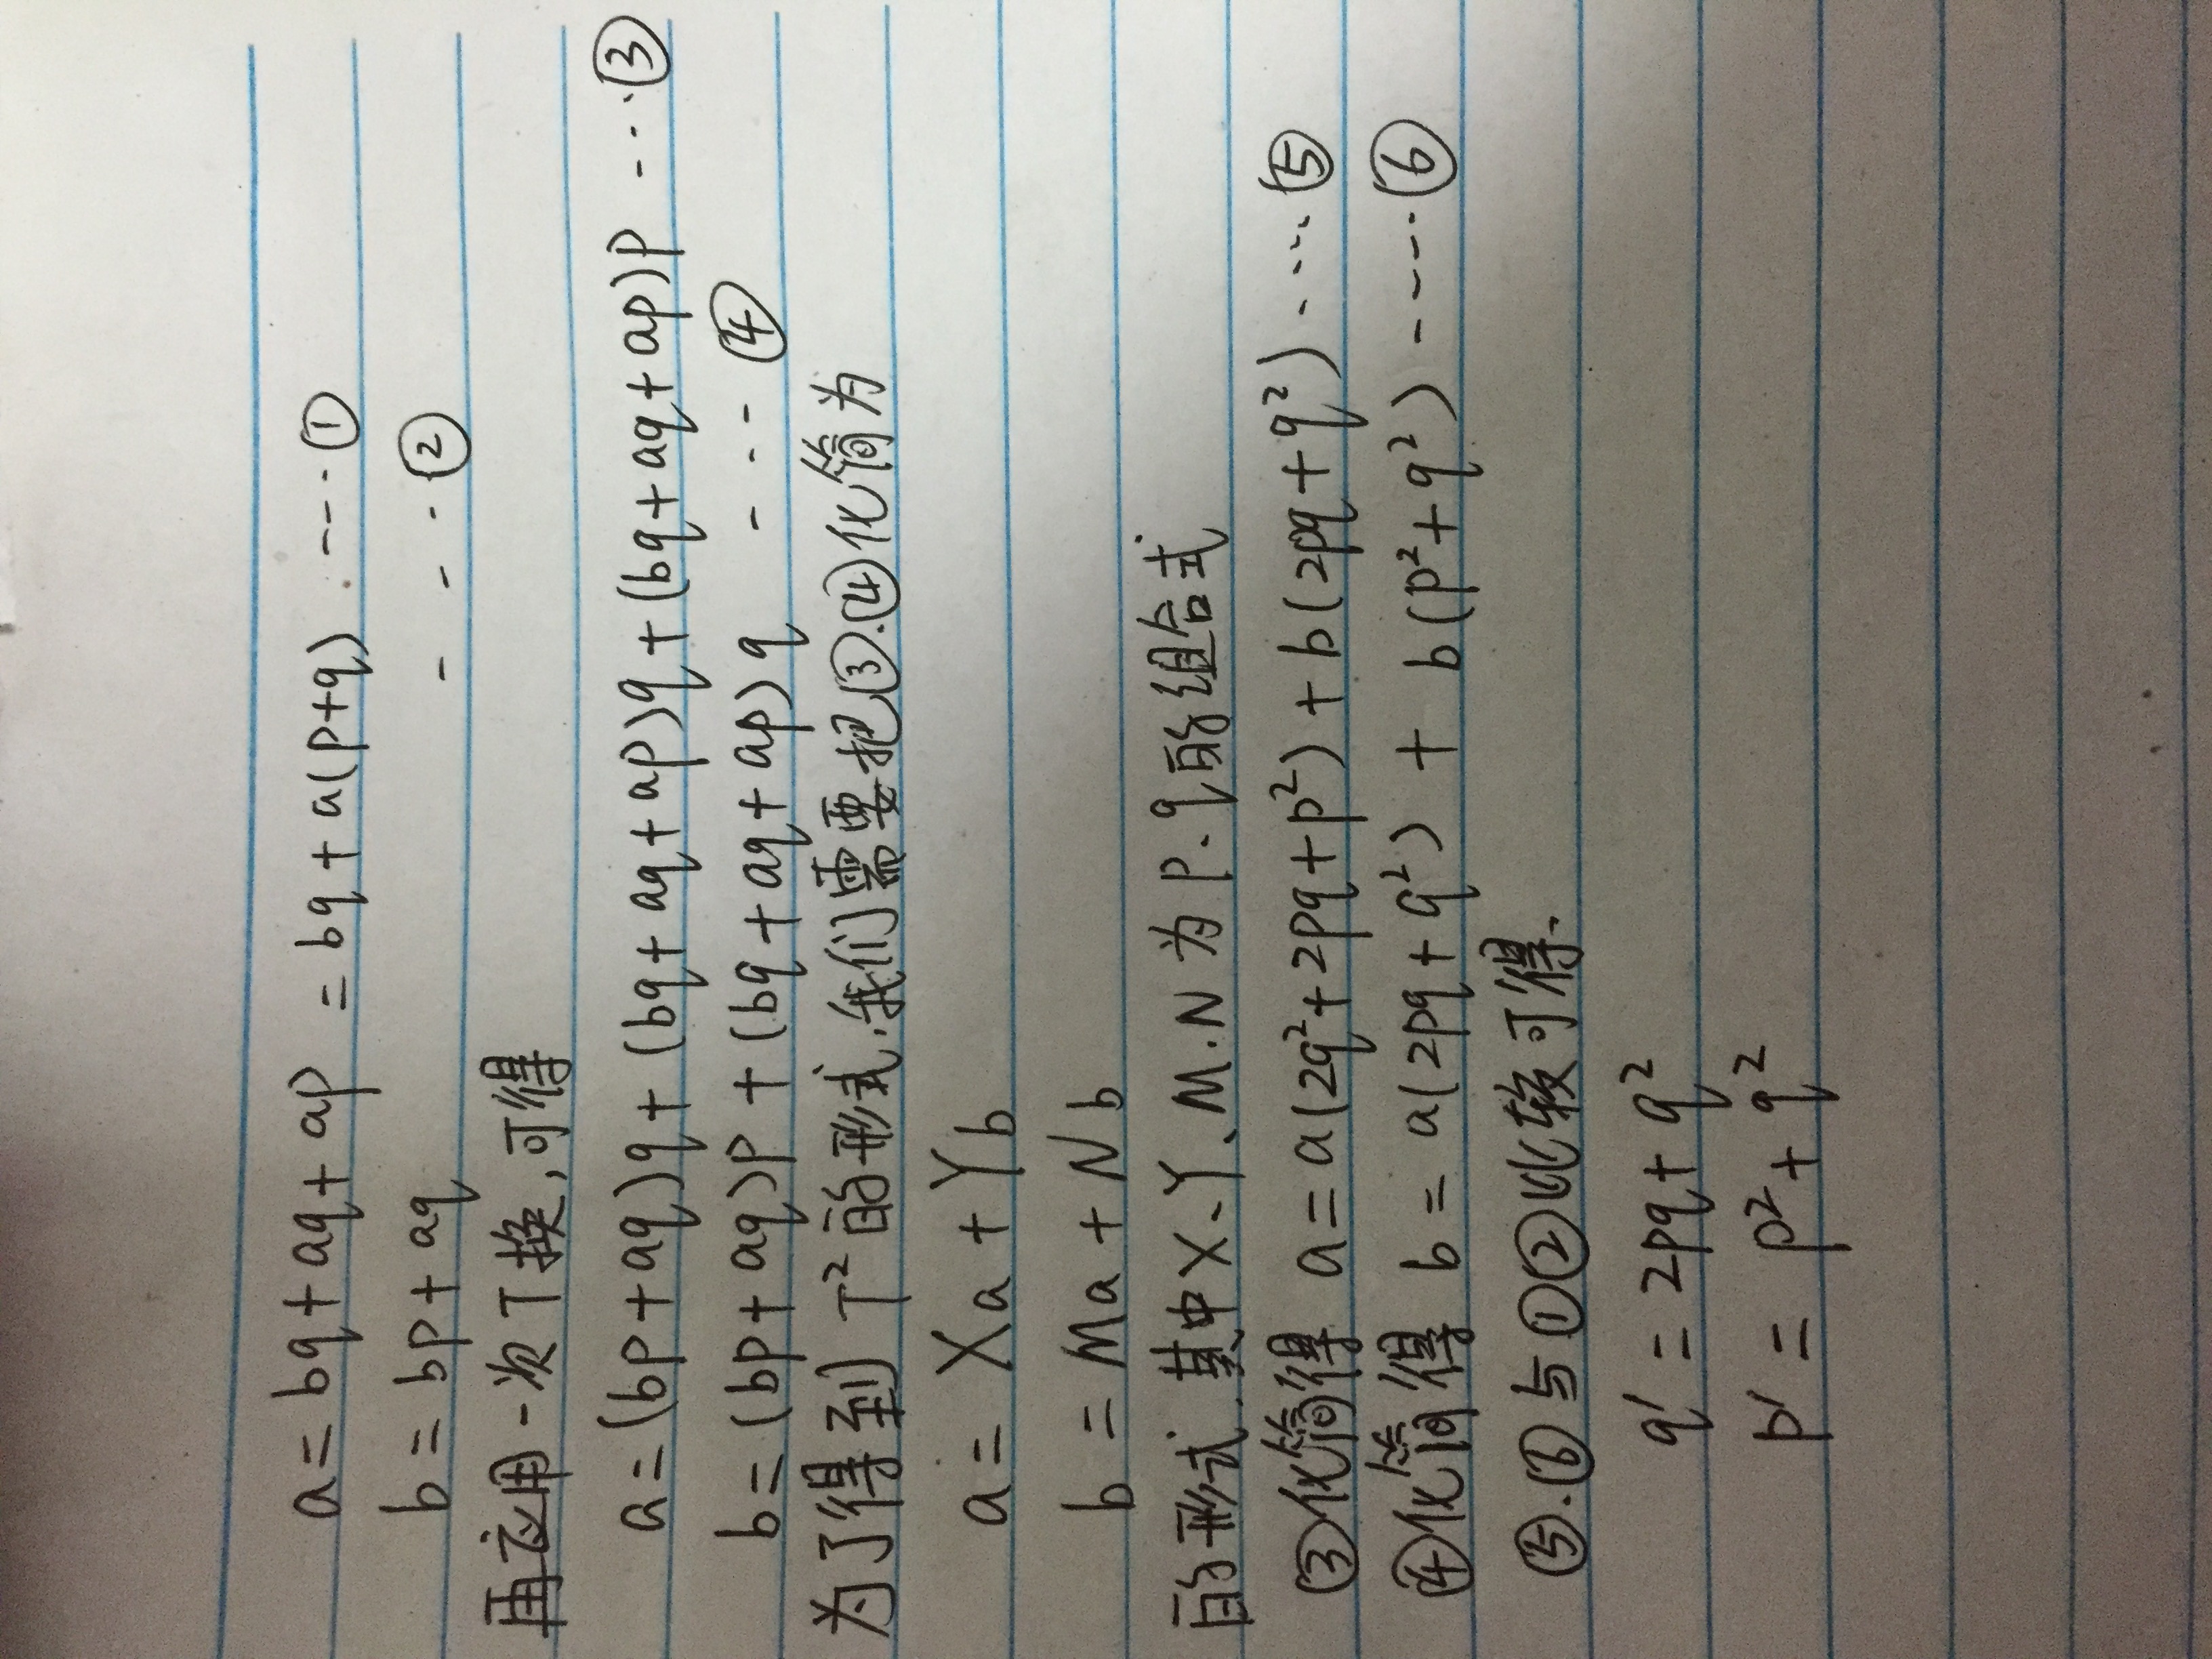 a = bq + aq + ap = bq + a(p+q) ---- ①
b = bp + aq - - - ②
再应用一次T换,可得
a = (bp + aq)q + (bq + aq + ap)q + (bq + aq + ap)p ---- ③
b = (bp + aq)p + (bq + aq + ap)q - - - ④
为了得到 T² 的形式,我们需要把③.④化简为
a = Xa + Yb
b = Ma + Nb
的形式.其中X、Y、M.N 为 P、q的组合式
③化简得 a = a(2q² + 2pq + p²) + b(2pq + q²) ---- ⑤
④化简得 b = a(2pq + q²) + b(p² + q²) ----- ⑥
⑤.⑥与①②比较可得.
q′ = 2pq + q²
p′ = p² + q²